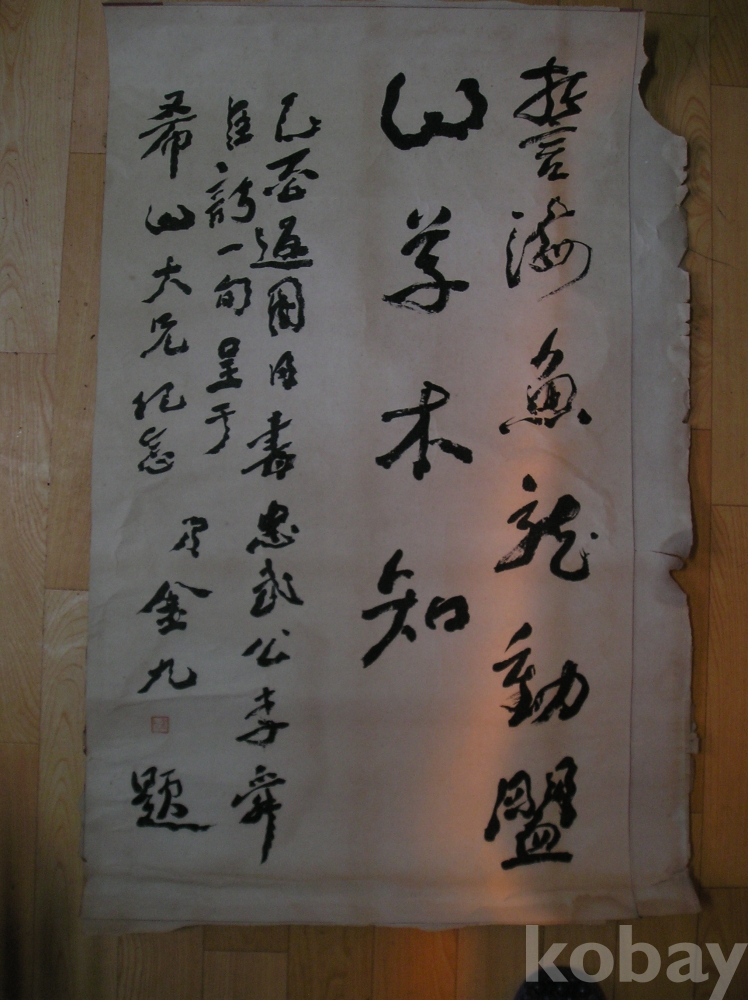 誓海魚龍動盟
山草木知
國日書忠武公李舜
臣詩一句呈于
希山大兄紀念
金九
題
kobay